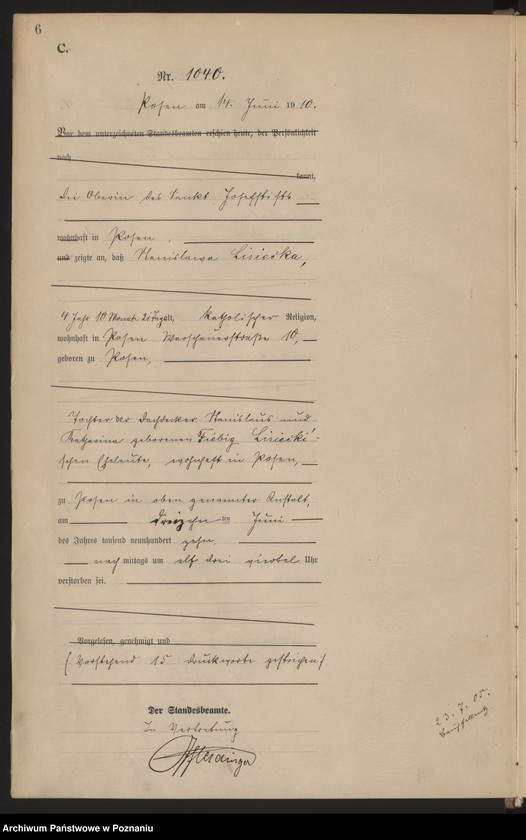 6
C.
Nr. 1040.
Posen am 14. Juni 1910.
Vor dem unterzeichneten Standesbeamten erschien heute, der Persönlichkeit
nach
kannt,
die Oberin des Sankt Josefstifts
wohnhaft in Posen
und zeigte an, daß Stanislawa Lisiecka,
4 Jahr 10 Monate alt, katholischer Religion,
wohnhaft in Posen Warschauerstraße 10,
geboren zu Posen,
Tochter der Dachdecker Stanislaus und
Katharina geborenen Fiebig Lisiecki'
schen Eheleute, wohnhaft in Posen,
zu Posen in oben genannter Anstalt,
am dreizehn ten Juni
des Jahres tausend neunhundert zehn
nach mittags um elf drei viertel Uhr
verstorben sei.
Vorgelesen, genehmigt und
(Vorstehend 15 Druckworte gestrichen)
Der Standesbeamte.
In Vertretung
23. 7. 05.
Archiwum Państwowe w Poznaniu